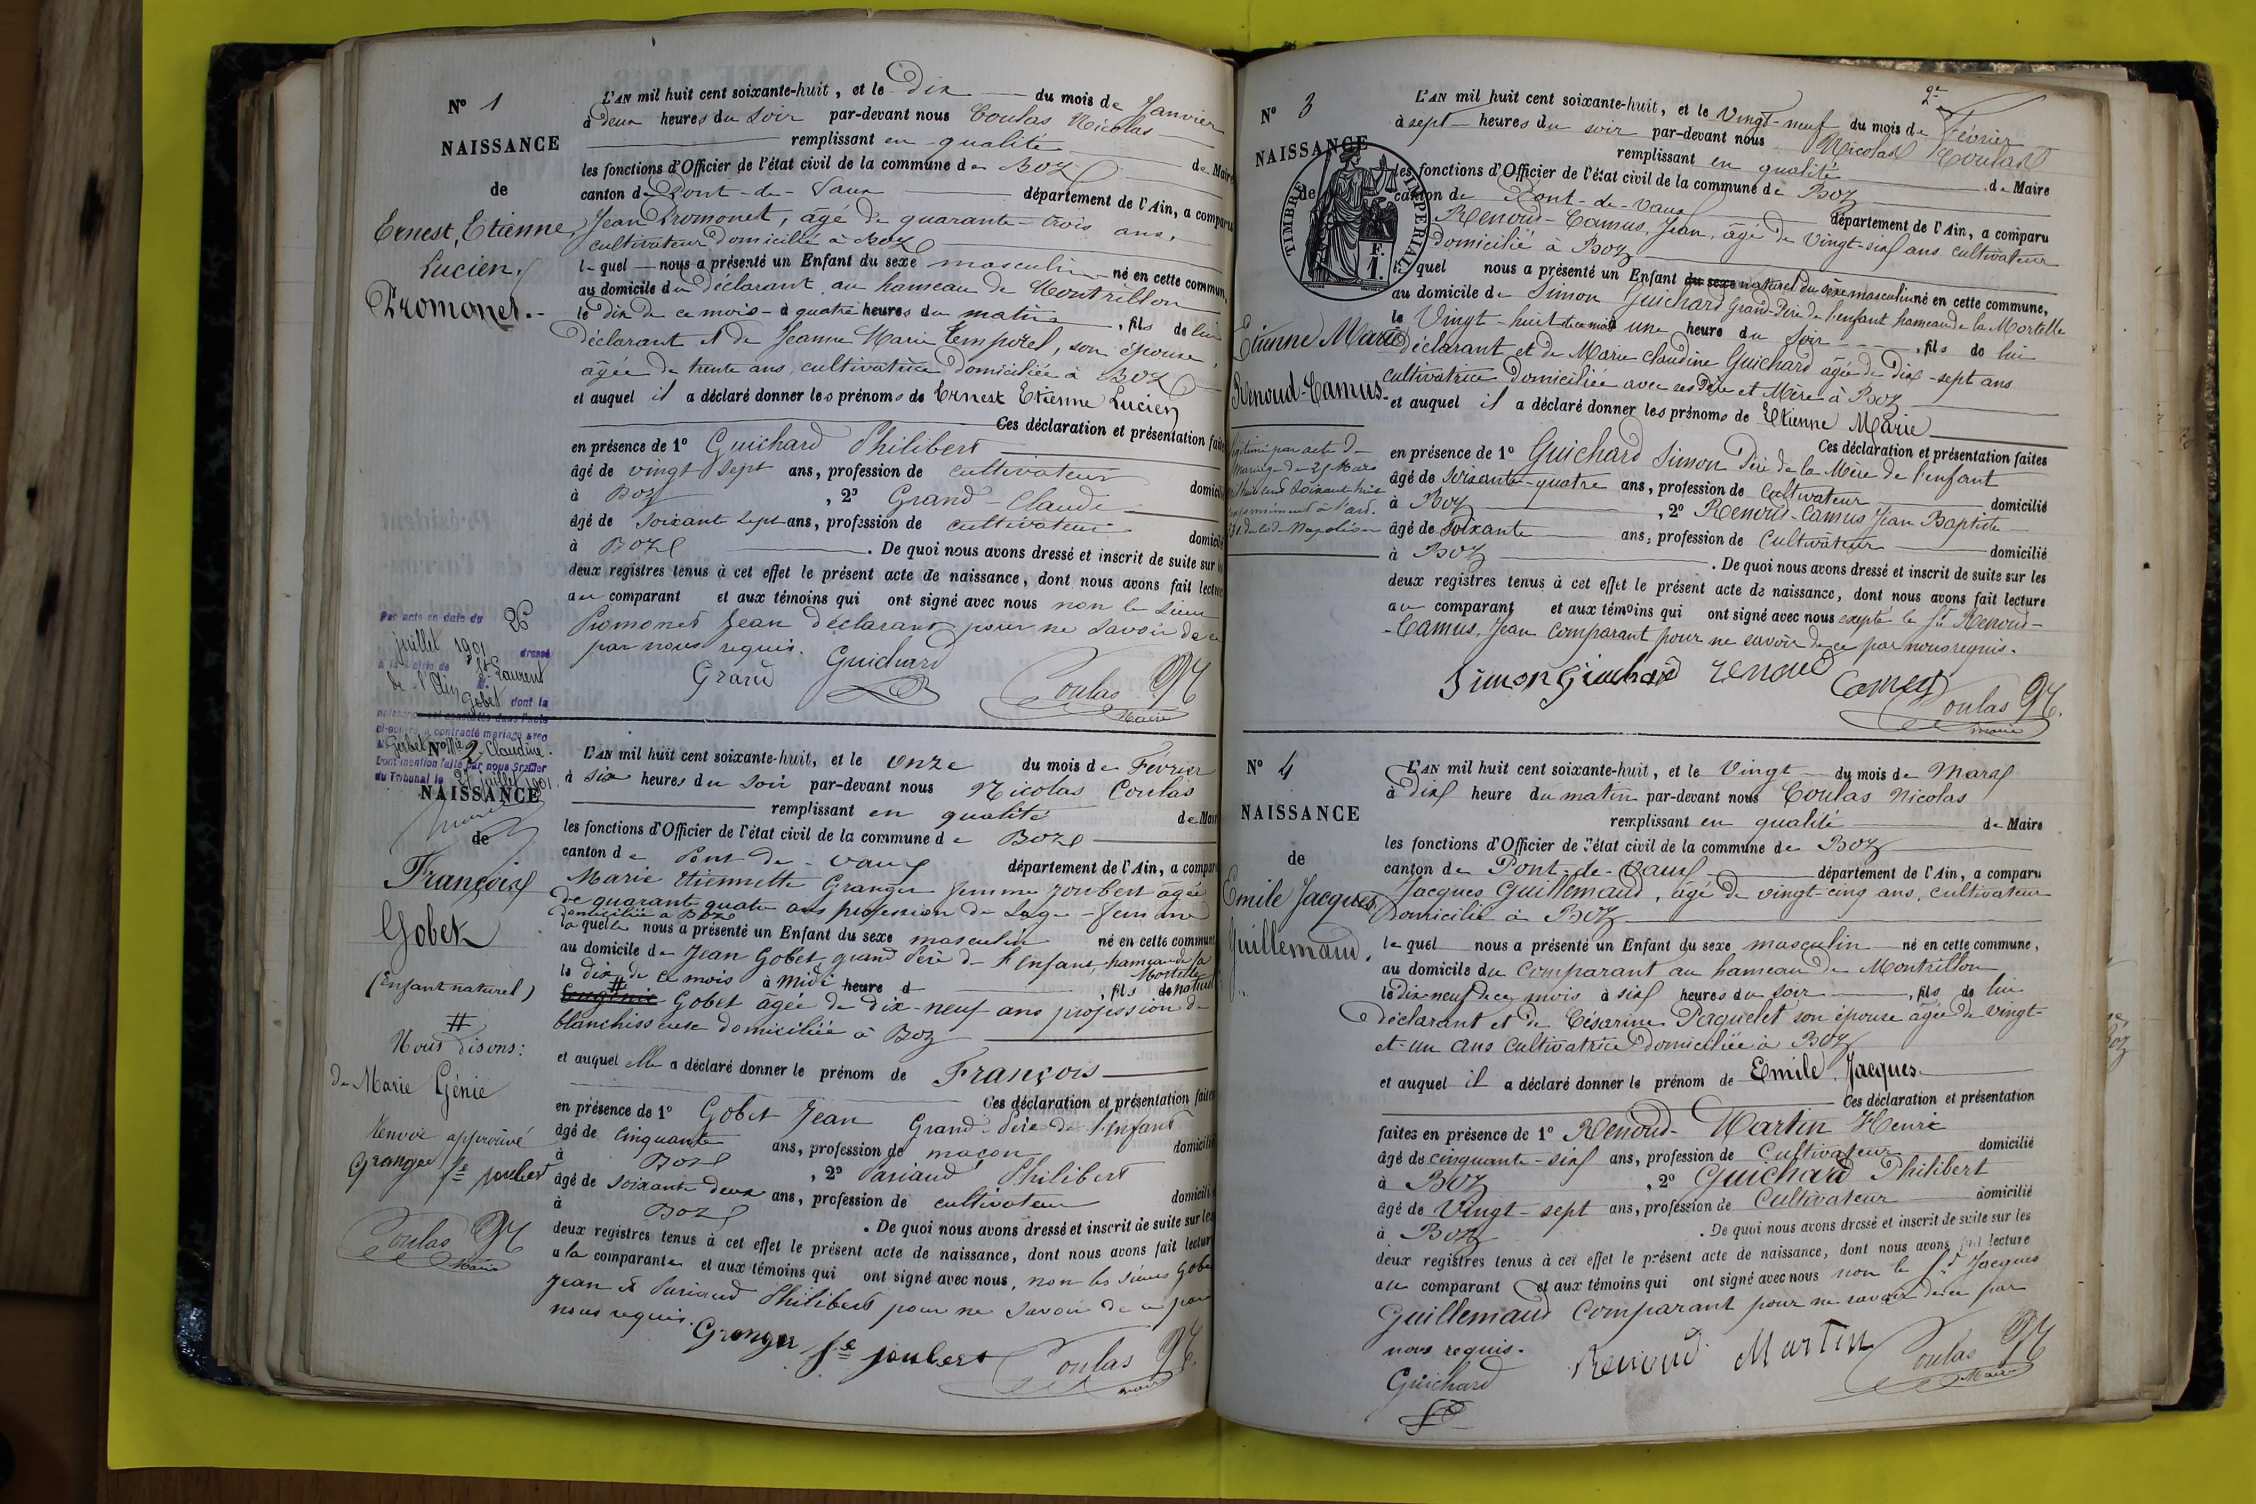 N° 1
NAISSANCE
de
Ernest, Etienne,
Lucien,
Promonet.
L'AN mil huit cent soixante-huit, et le Dix du mois de Janvier
à deux heures du soir par-devant nous Coulas Nicolas
remplissant en qualité de Maire
les fonctions d'Officier de l'état civil de la commune de Boz
canton de Pont-de-Vaux département de l'Ain, a comparu
Jean Promonet, âgé de quarante-trois ans,
cultivateur domicilié à Boz
lequel nous a présenté un Enfant du sexe masculin né en cette commune,
au domicile du déclarant au hameau de Montrillon
le dix de ce mois à quatre heures du matin, fils de lui
déclarant et de Jeanne Marie Temporel, son épouse
âgée de trente ans, cultivatrice domiciliée à Boz
et auquel il a déclaré donner les prénoms de Ernest Etienne Lucien
Ces déclaration et présentation faites
en présence de 1° Guichard Philibert
âgé de vingt sept ans, profession de cultivateur
à Boz, 2° Grand-Claude domicilié
âgé de soixant sept ans, profession de cultivateur
à Boz. De quoi nous avons dressé et inscrit de suite sur les domicilié
deux registres tenus à cet effet le présent acte de naissance, dont nous avons fait lecture
au comparant et aux témoins qui ont signé avec nous non le sieur
Promonet Jean déclarant pour ne savoir de ce
par nous requis.
Grand Guichard Coulas N.
Maire
Par acte en date du 26
juillet 1901 dressé
à la mairie de St Laurent
de l'Ain
Gobet dont la
naissance est constatée dans l'acte
ci-contre a contracté mariage avec
Dont mention faite par nous Greffier
du Tribunal le 27 juillet 1901
N° 2
NAISSANCE
de
François
Gobet
(Enfant naturel)
#
Nous disons:
de Marie Génie
Renvoi approuvé
Granger fe joubert
Coulas N.
Maire
L'AN mil huit cent soixante-huit, et le onze du mois de Février
à six heures du soir par-devant nous Nicolas Coulas
remplissant en qualité de Maire
les fonctions d'Officier de l'état civil de la commune de Boz
canton de Pont-de-Vaux département de l'Ain, a comparu
Marie Etiennette Granger femme Joubert âgée
de quarante quatre ans profession de Sage-femme
domiciliée à Boz
laquelle nous a présenté un Enfant du sexe masculin né en cette commune
au domicile de Jean Gobet, grand Père de l'Enfant, hameau de la
Mortelle
le dix de ce mois à midi heure d, fils de naturel
# Gobet âgée de dix-neuf ans profession de
blanchisseuse domiciliée à Boz
et auquel elle a déclaré donner le prénom de François
Ces déclaration et présentation faites
en présence de 1° Gobet Jean Grand-Père de l'Enfant
âgé de cinquante ans, profession de maçon domicilié
à Boz, 2° Pariaud Philibert
âgé de soixante deux ans, profession de cultivateur domicilié
à Boz. De quoi nous avons dressé et inscrit de suite sur les
deux registres tenus à cet effet le présent acte de naissance, dont nous avons fait lecture
a la comparante et aux témoins qui ont signé avec nous, non les sieurs Gobet
Jean et Pariaud Philibert pour ne savoir de ce par
nous requis.
Granger fe joubert Coulas N.
maire
2e
N° 3
NAISSANCE
de
TIMBRE IMPERIAL
F.
1.
Etienne Marie
Renoud-Camus
Légitimé par acte de
Mariage du 25 Mars
mil huit cent soixant huit
conformément à l'art.
331 du Cod. Napoléon
L'AN mil huit cent soixante-huit, et le Vingt-neuf du mois de Février
à sept heures du soir par-devant nous Nicolas Coulas
remplissant en qualité de Maire
les fonctions d'Officier de l'état civil de la commune de Boz
canton de Pont-de-Vaux département de l'Ain, a comparu
Renoud-Camus, Jean, âgé de Vingt-six ans cultivateur
domicilié à Boz
lequel nous a présenté un Enfant du sexe naturel du sèxe masculin né en cette commune,
au domicile de Simon Guichard Grand-Père de l'enfant hameau de la Mortelle
le Vingt-huit de ce mois à une heure du Soir, fils de lui
déclarant et de Marie Claudine Guichard âgée de Dix-sept ans
cultivatrice domiciliée avec ses Père et Mère à Boz
et auquel il a déclaré donner les prénoms de Etienne Marie
Ces déclaration et présentation faites
en présence de 1° Guichard Simon Père de la Mère de l'enfant
âgé de Soixante-quatre ans, profession de Cultivateur domicilié
à Boz, 2° Renoud-Camus Jean Baptiste
âgé de Soixante ans, profession de Cultivateur domicilié
à Boz. De quoi nous avons dressé et inscrit de suite sur les
deux registres tenus à cet effet le présent acte de naissance, dont nous avons fait lecture
au comparant et aux témoins qui ont signé avec nous exepté le Sr Renoud-
-Camus, Jean Comparant pour ne savoir de ce par nous requis.
Simon Guichard renoud Camus Coulas N.
maire
N° 4
NAISSANCE
de
Emile Jacques
Guillemaud.
L'AN mil huit cent soixante-huit, et le Vingt du mois de Mars
à Dix heure du matin par-devant nous Coulas Nicolas
remplissant en qualité de Maire
les fonctions d'Officier de l'état civil de la commune de Boz
canton de Pont-de-Vaux département de l'Ain, a comparu
Jacques Guillemaud, âgé de vingt-cinq ans, cultivateur
domicilié à Boz
lequel nous a présenté un Enfant du sexe masculin né en cette commune,
au domicile du comparant au hameau de Montrillon
le dix-neuf de ce mois à six heures du soir, fils de lui
déclarant et de Césarine Paquelet son épouse âgée de vingt-
et-un ans cultivatrice domiciliée à Boz
et auquel il a déclaré donner le prénom de Emile Jacques
Ces déclaration et présentation
faites en présence de 1° Renoud-Martin Henri
âgé de cinquante-six ans, profession de Cultivateur domicilié
à Boz, 2° Guichard Philibert
âgé de Vingt-sept ans, profession de Cultivateur domicilié
à Boz. De quoi nous avons dressé et inscrit de suite sur les
deux registres tenus à cet effet le présent acte de naissance, dont nous avons fait lecture
au comparant et aux témoins qui ont signé avec nous non le Sr Jacques
Guillemaud Comparant pour ne savoir de ce par
nous requis.
Renoud Martin Coulas N.
Maire
Guichard